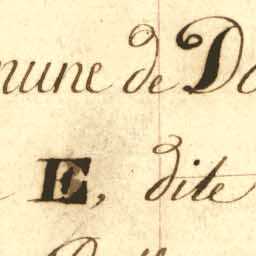 mune de Do
E, dite